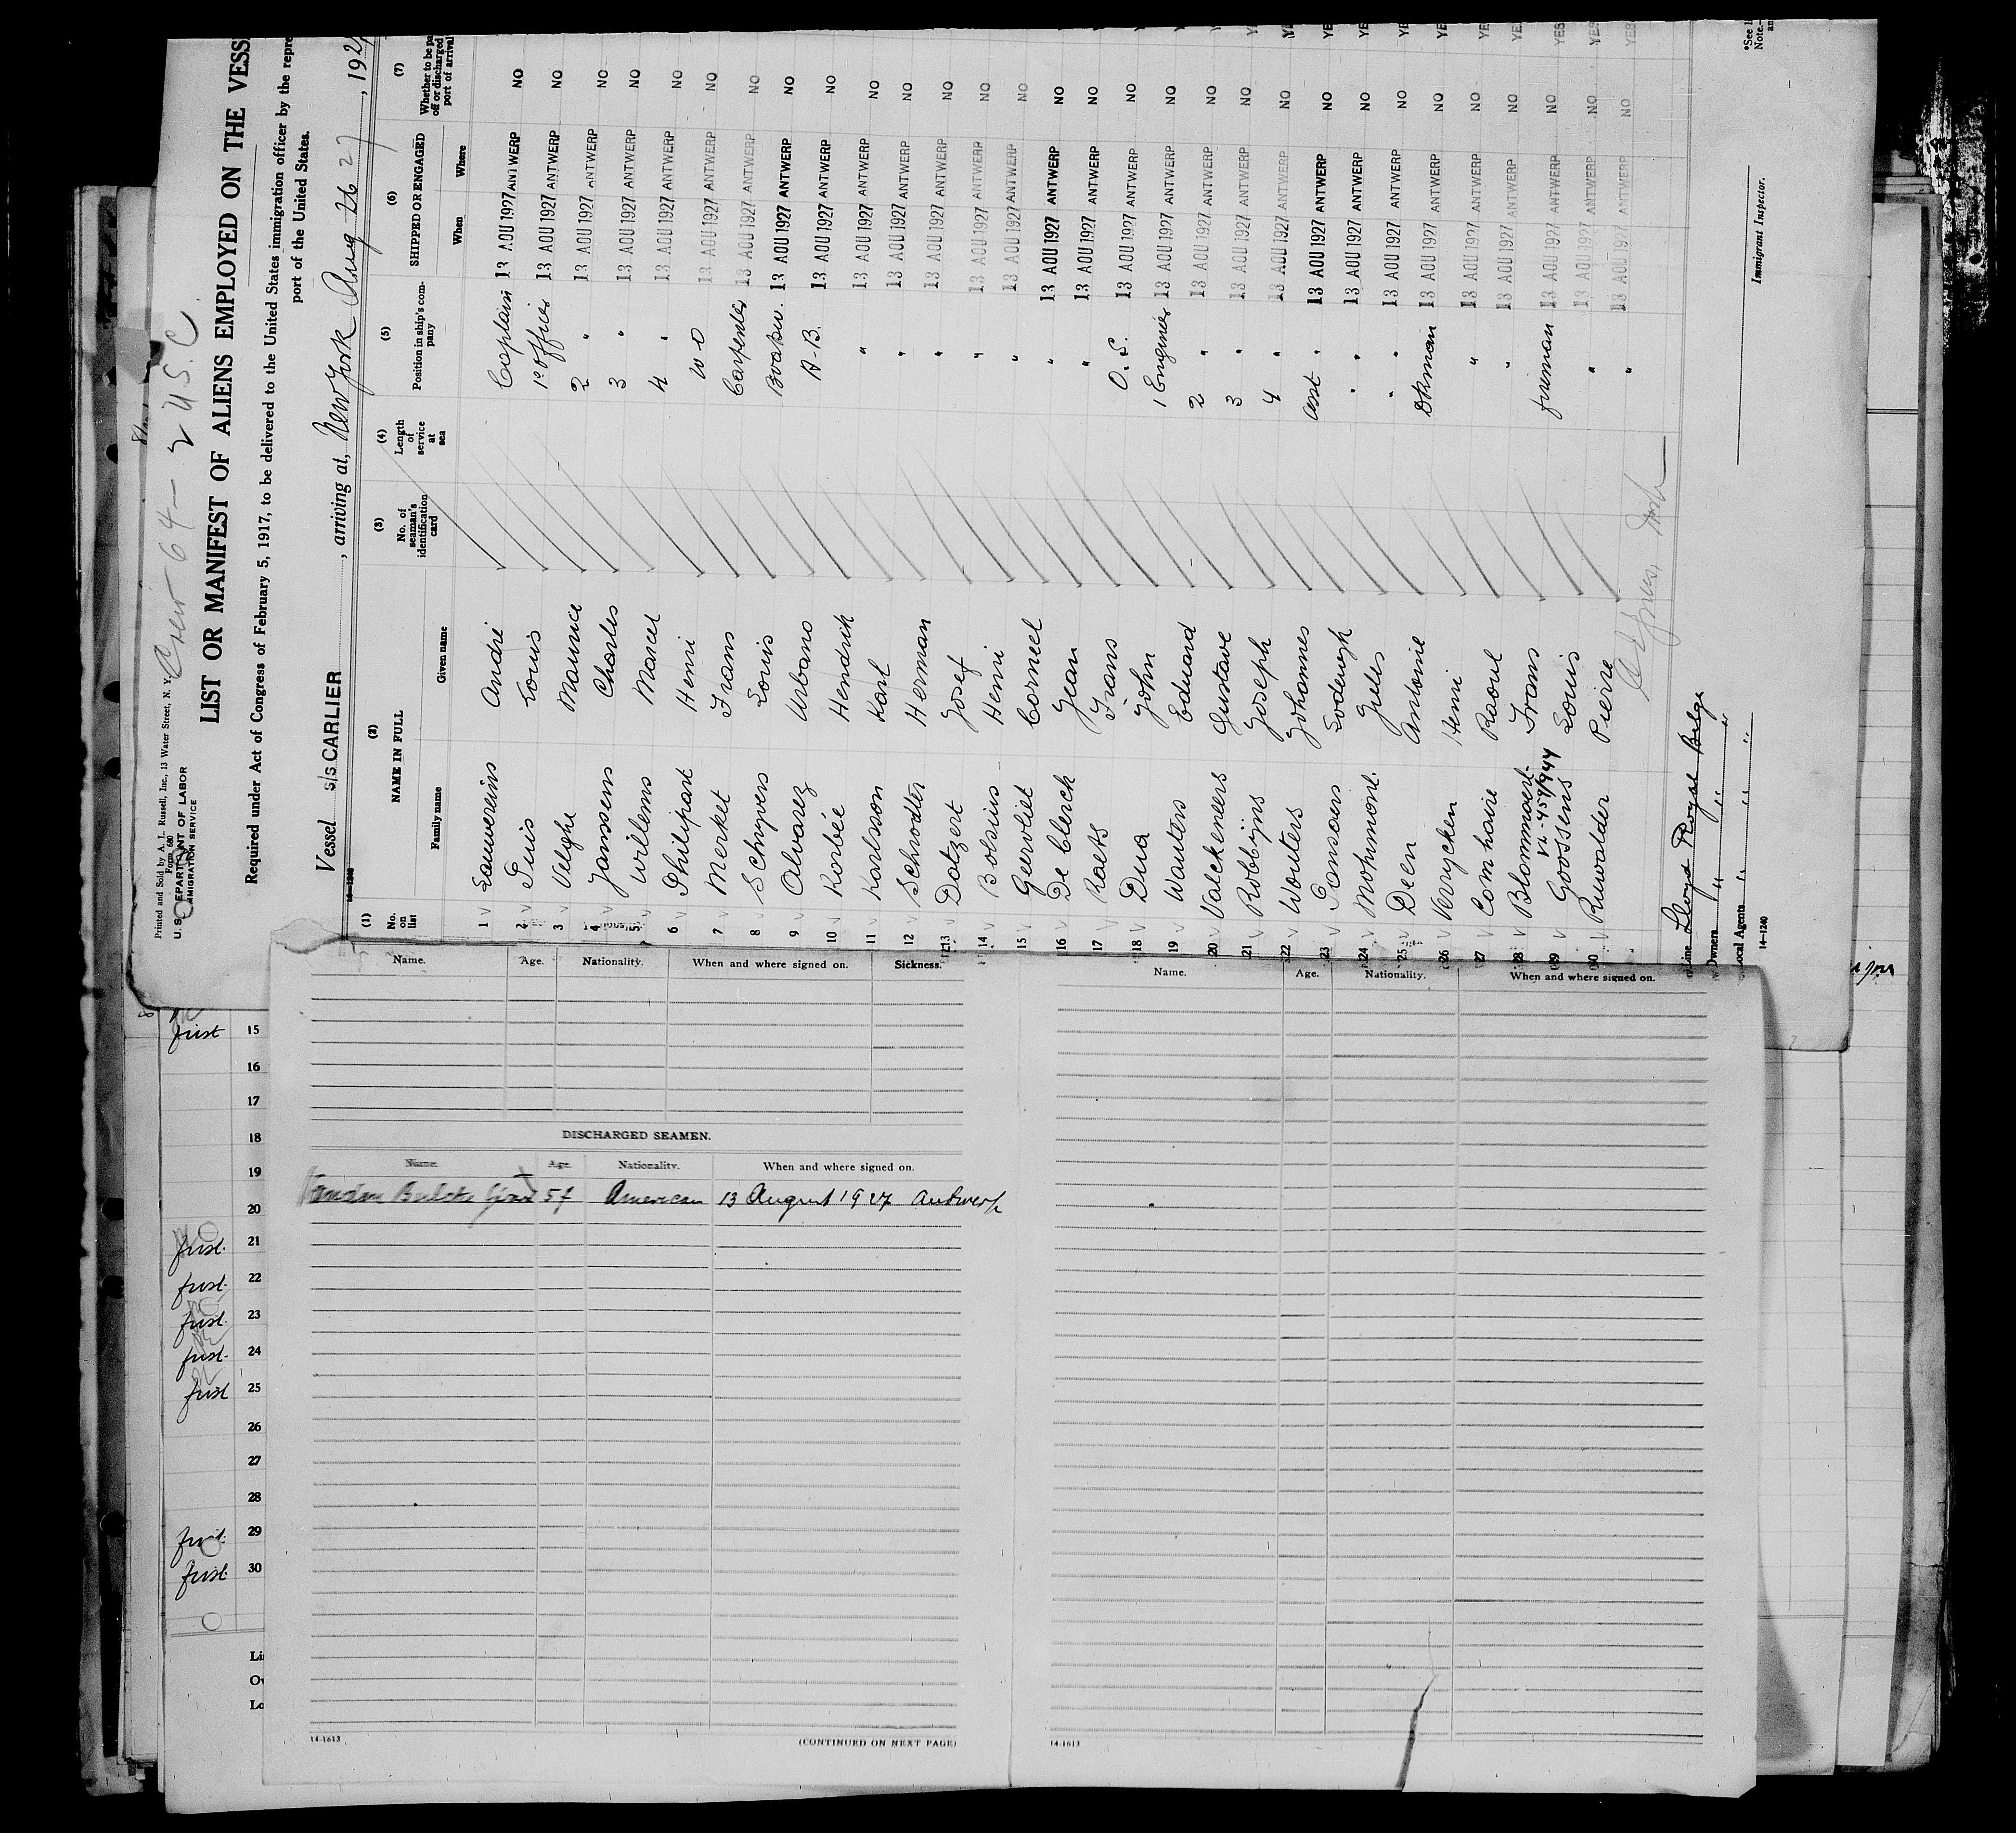 Crew 64 - 2 U.S.C
Printed and Sold by A. L. Russell, Inc., 13 Water Street, N. Y.
Form 680
U. S. DEPARTMENT OF LABOR
IMMIGRATION SERVICE
LIST OR MANIFEST OF ALIENS EMPLOYED ON THE VESS
Required under Act of Congress of February 5, 1917, to be delivered to the United States immigration officer by the repre
port of the United States.
Vessel S/S CARLIER, arriving at, New York Aug 26 27, 192
14-1240
(1) (2) (3) (4) (5) (6) (7)
No. on list NAME IN FULL Family name Given name No. of seaman's identification card Length of service at sea Position in ship's company SHIPPED OR ENGAGED When Where Whether to be pa off or discharged port of arrival
1 Lauwereins André Captain 13 AOU 1927 ANTWERP NO
2 Puis Louis 1° officer 13 AOU 1927 ANTWERP NO
3 Velghe Maurice 2 " 13 AOU 1927 ANTWERP NO
4 Janssens Charles 3 " 13 AOU 1927 ANTWERP NO
5 Willems Marcel 4 " 13 AOU 1927 ANTWERP NO
6 Philipart Henri W O 13 AOU 1927 ANTWERP NO
7 Merket Frans Carpenter 13 AOU 1927 ANTWERP NO
8 Schepers Louis Boatsw. 13 AOU 1927 ANTWERP NO
9 Alvarez Urbano A-B. 13 AOU 1927 ANTWERP NO
10 Korbée Hendrik " 13 AOU 1927 ANTWERP NO
11 Karlsson Karl " 13 AOU 1927 ANTWERP NO
12 Schrodter Herman " 13 AOU 1927 ANTWERP NO
13 Datzert Josef " 13 AOU 1927 ANTWERP NO
14 Bolsius Henri " 13 AOU 1927 ANTWERP NO
15 Geervliet Corneel " 13 AOU 1927 ANTWERP NO
16 De Clerck Jean " 13 AOU 1927 ANTWERP NO
17 Raets Frans " 13 AOU 1927 ANTWERP NO
18 Dua John O.S. 13 AOU 1927 ANTWERP NO
19 Wauters Eduard 1 Engineer 13 AOU 1927 ANTWERP NO
20 Valckeneers Gustave 2 " 13 AOU 1927 ANTWERP NO
21 Robbijns Joseph 3 " 13 AOU 1927 ANTWERP NO
22 Wouters Johannes 4 " 13 AOU 1927 ANTWERP NO YE
23 Pansaers Lodewyk asst " 13 AOU 1927 ANTWERP NO YE
24 Mohimont. Jules " " 13 AOU 1927 ANTWERP NO YE
25 Deen Antoine " " 13 AOU 1927 ANTWERP NO YE
26 Verrycken Henri Dkman 13 AOU 1927 ANTWERP NO YE
27 Comhaire Raoul " 13 AOU 1927 ANTWERP NO YE
28 Blommaert Frans " 13 AOU 1927 ANTWERP NO YE
29 Goossens Louis fireman 13 AOU 1927 ANTWERP NO YES
30 Ruwalder Pierre " 13 AOU 1927 ANTWERP NO YES
Line Lloyd Royal Belge
Owners " " "
Local Agents " " "
14-1240
Immigrant Inspector.
*See
Note.—
Name. Age. Nationality. When and where signed on. Sickness.
DISCHARGED SEAMEN.
Name. Age. Nationality. When and where signed on.
American 13 August 1927 Antwerp
14-1613
(CONTINUED ON NEXT PAGE)
Name. Age. Nationality. When and where signed on.
14-1613
first 15
16
17
18
19
20
first. 21
first. 22
first. 23
first. 24
first 25
26
27
28
first. 29
first. 30